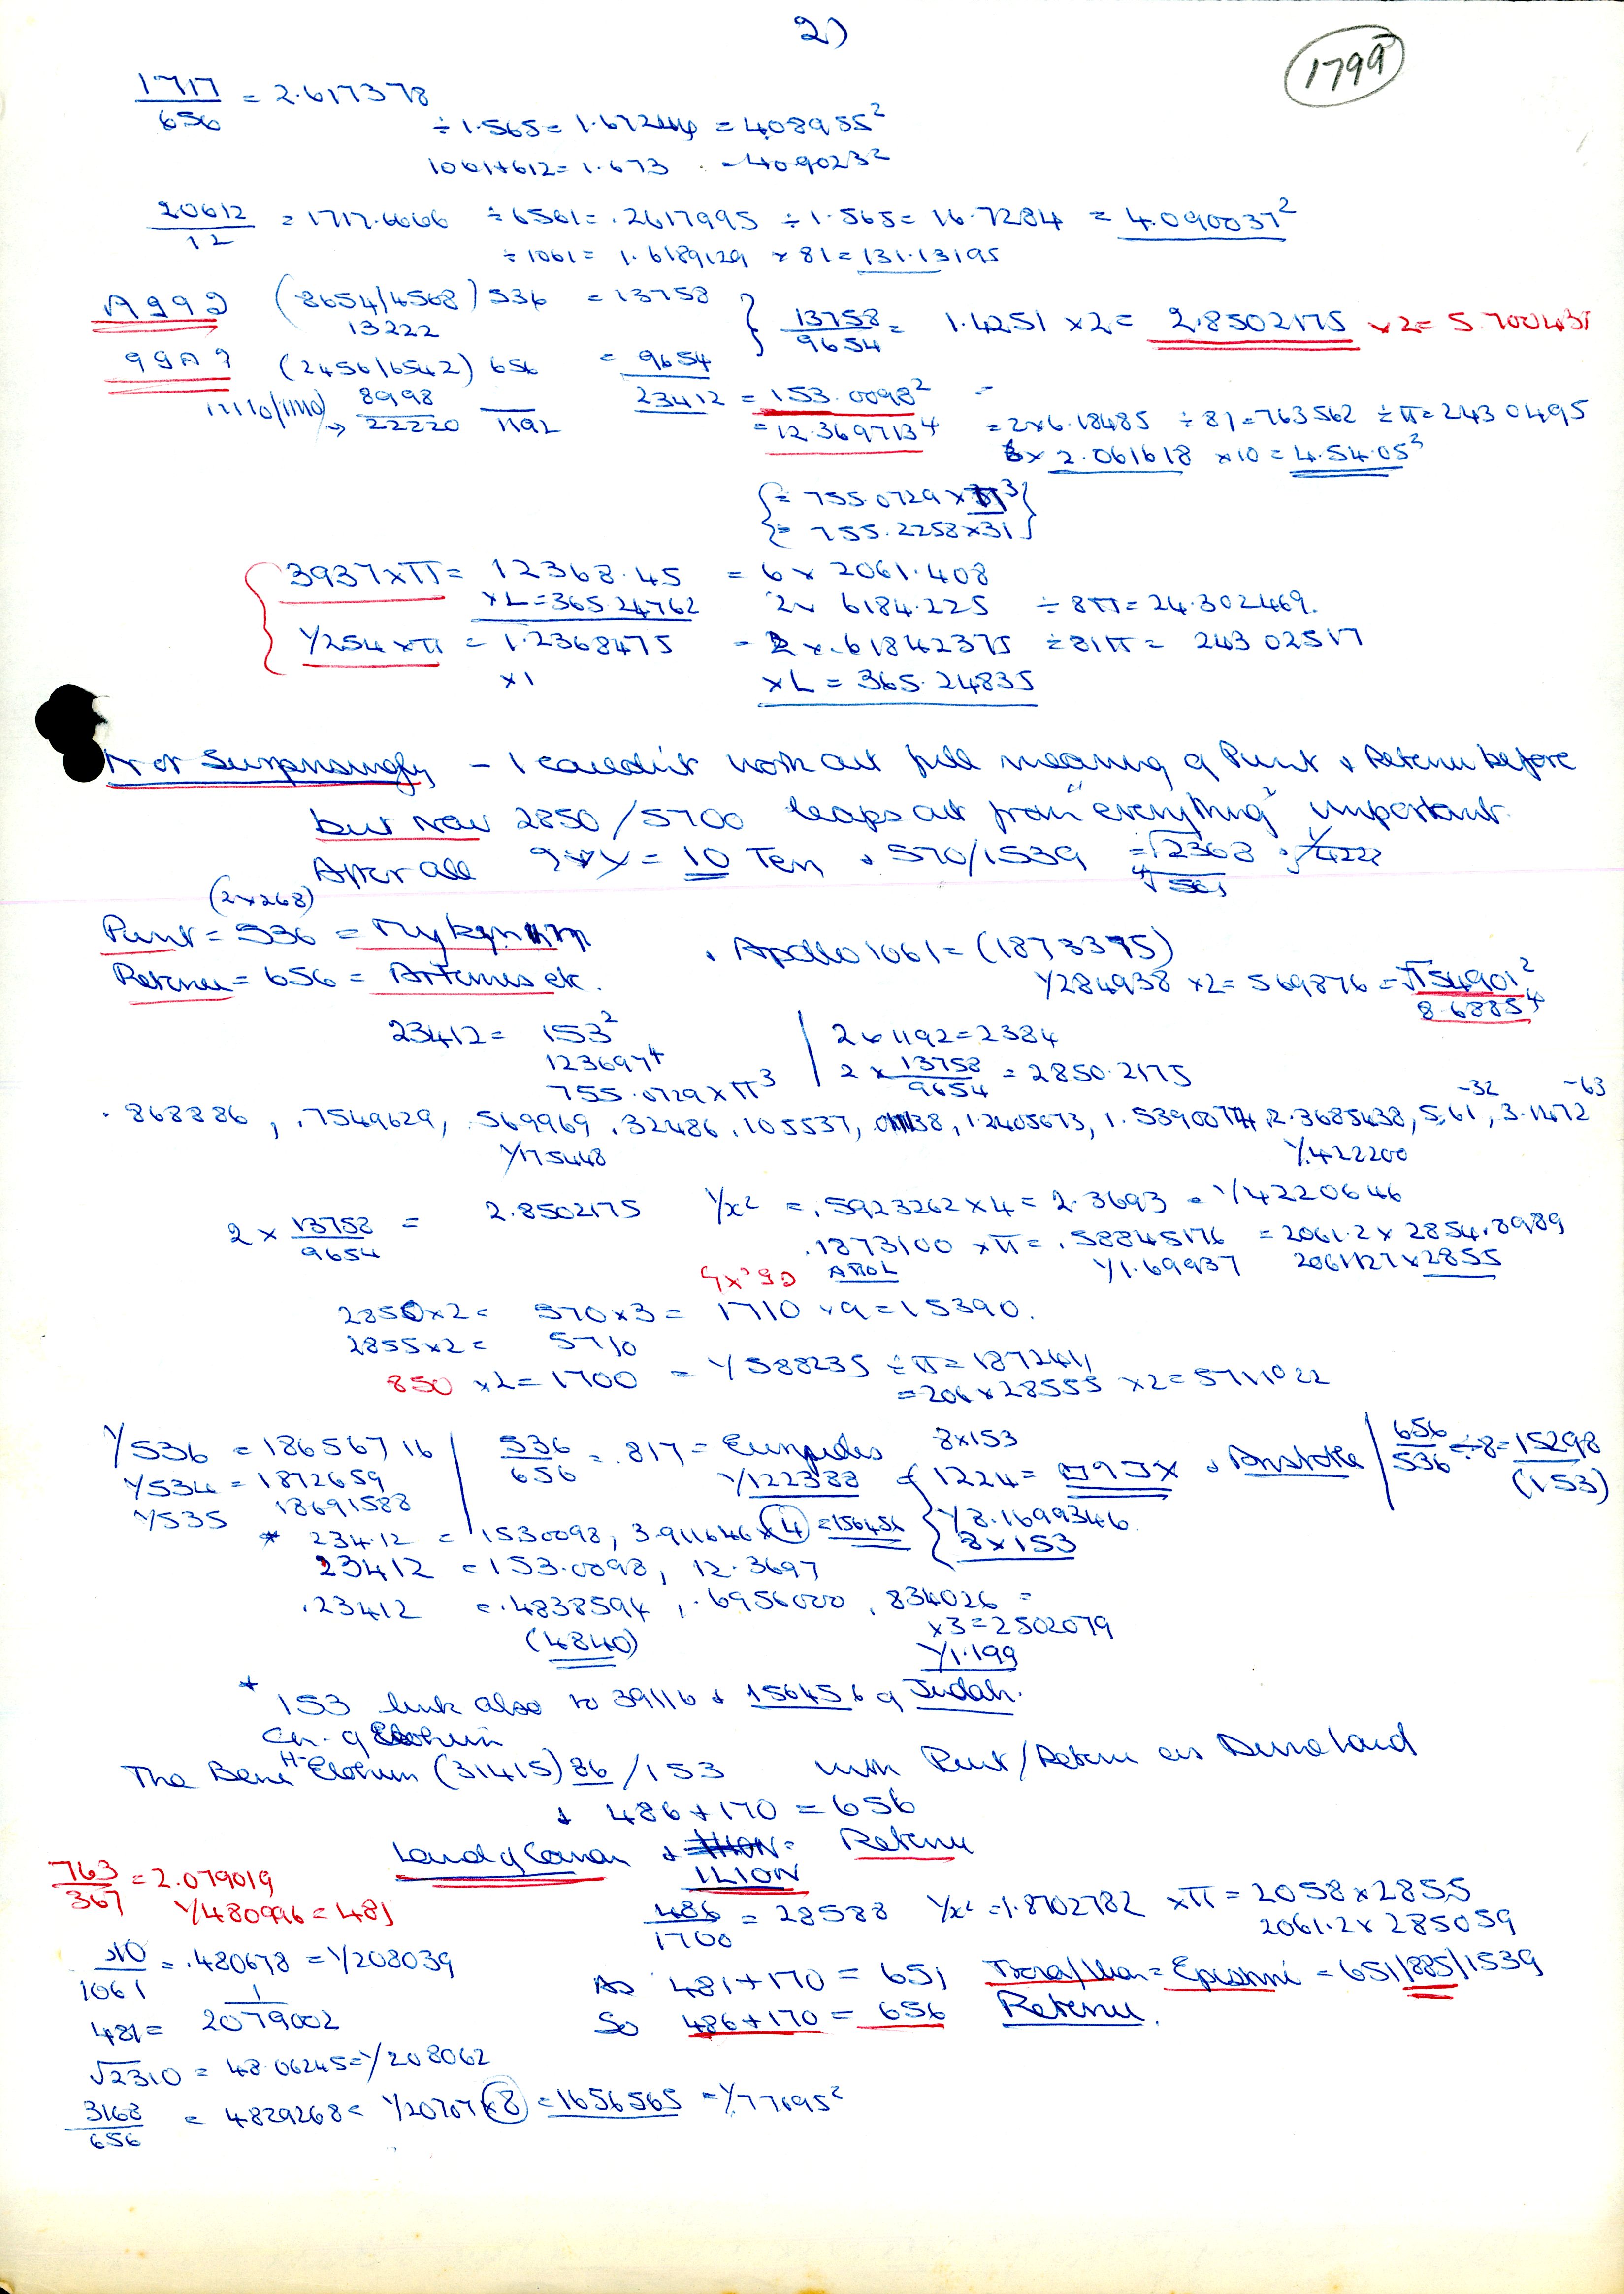 2)
1799
1717/656 = 2.617378
÷ 1.565 = 1.67244 = 408955²
1061+612 = 1.673 = 409023²
20612/12 = 1717.6666 ÷ 6561 = .2617995 ÷ 1.565 = 16.7284 = 4.090037²
÷ 1061 = 1.6189129 × 81 = 131.13195
(8654/4568) 536 = 13758
13222
13758/9654 = 1.4251 × 2 = 2.8502175 × 2 = 5.700435
(2456/6542) 656 = 9654
8998 23412 = 153.0098²
22220 1192 = 12.369713⁴ = 2×6.18485 ÷ 81 = 763562 ÷ π = 2430495
6× 2.061618 ×10 = 4.54.05³
= 755.0729 × π³
= 755.2258 × 31
3937 × π = 12368.45 = 6 × 2061.408
×L = 365.24762 2× 6184.225 ÷ 8π = 24.302469.
1/254 × π = 1.2368475 = 2 × .61842375 ÷ 81π = 24302517
×1 ×L = 365.24835
Not Surprisingly – I couldn't work out full meaning of Punt & Retenu before
but now 2850/5700 leaps out from "everything" important.
After all = 10 Ten & 570/1539 = √2368 1/4222
⁴√561
(2×268)
Punt = 536 =
& Apollo 1061 = (1873395)
Retenu = 656 = Artemis etc.
1/284938 ×2 = 569876 = √54901²
8.68854
23412 = 153² | 261192 = 2384
123697⁴ | 2 × 13758/9654 = 2850.2175
755.0729 × π³
.868886, .7549629, .569969 .32486 .105537, 01138, 1.2405673, 1.5390074, 2.3685438, 5.61⁻³², 3.1472⁻⁶³
1/175448 1/.422200
2 × 13758/9654 = 2.8502175 1/x² = .5923262 × 4 = 2.3693 = 1/4220646
.1873100 × π = .58845176 = 2061.2 × 2854.8989
1/1.69937 2061127 × 2855
2850×2 = 570×3 = 1710 × 9 = 15390.
2855×2 = 5710
850 ×2 = 1700 = 1/588235 ÷ π = 1872411
= 206 × 28555 ×2 = 5711022
1/536 = 18656716 | 536/656 = .817 = Euripides 8×153
1/534 = 1872659 1/122388 & 1224 = & Aristotle | 656/536 ÷ 8 = 15298
1/535 18691588 (153)
1/8.1699346
8×153
* 234.12 = 15.30098, 3.911646 × 4 = 156456
23412 = 153.0098, 12.3697
.23412 = .4838594, .6956000, 834026 =
(4840) ×3 = 2502079
1/1.199
* 153 link also to 39116 & 156456 of Judah.
Ch. of Elohim
The Bene H-Elohim (31415) 86/153 with Punt/Retenu as Divine land
& 486 + 170 = 656
Land of Canan & ILION Retenu
763/367 = 2.079019
1/480996 = 481
486/1700 = 28588 1/x² = 1.8702782 × π = 2058 × 2855
2061.2 × 285059
510/1061 = .480678 = 1/208039
As 481+170 = 651 = 651/885/1539
481 = 1/2079002
So 486+170 = 656 Retenu.
√2310 = 48.06245 = 1/208062
3168/656 = 4829268 = 1/20707 ×8 = 1656565 = 1/77695²